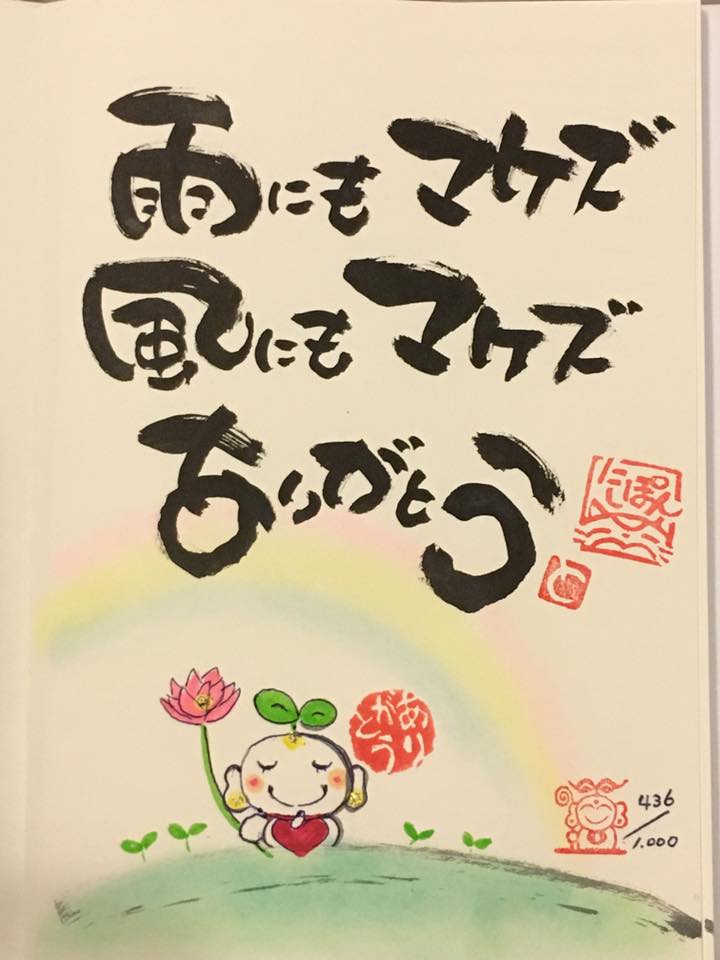 雨にもマケズ
風にもマケズ
ありがとう
にっぽん
ありがとう
436/1.000